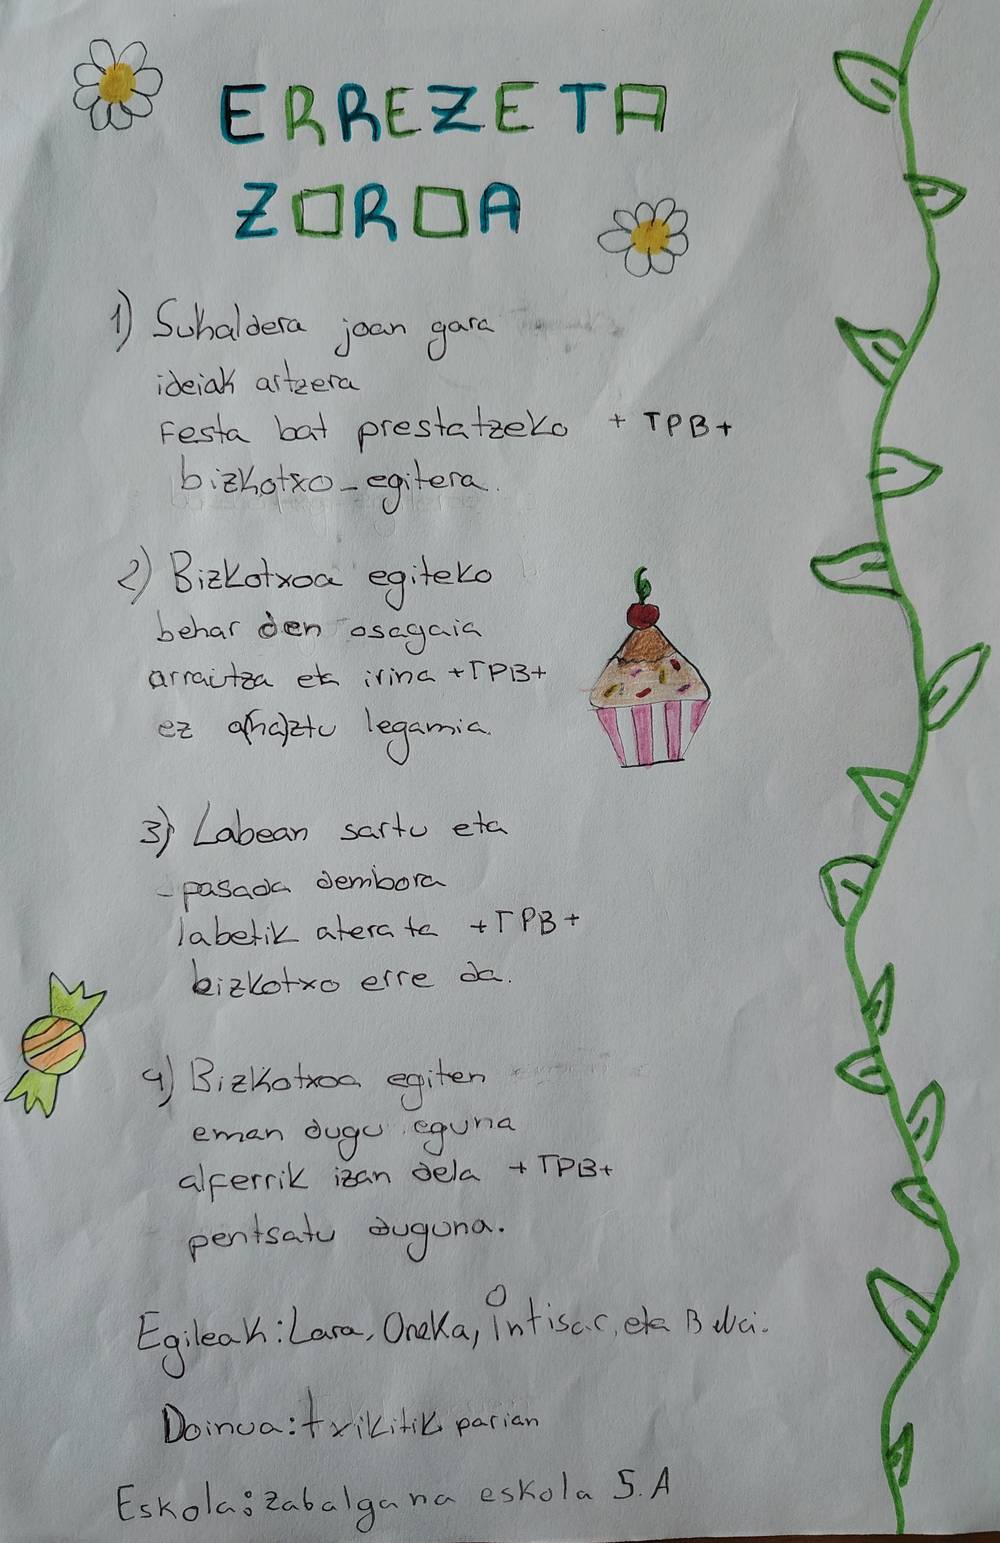 ERREZETA
ZOROA
1) Sukaldera joan gara
ideiak artzera
Festa bat prestatzeko + TPB+
bizkotxo-egitera.
2) Bizkotxoa egiteko
behar den osagaia
arrautza eta irina +TPB+
ez a(ha)ztu legamia.
3) Labean sartu eta
-pasada dembora
labetik atera ta +TPB+
bizkotxo erre da.
4) Bizkotxoa egiten
eman dugu eguna
alferrik izan dela +TPB+
pentsatu duguna.
Egileak: Lara, Oneka, intisar, eta
Doinua: txikitik parian
Eskola: zabalgana eskola 5.A